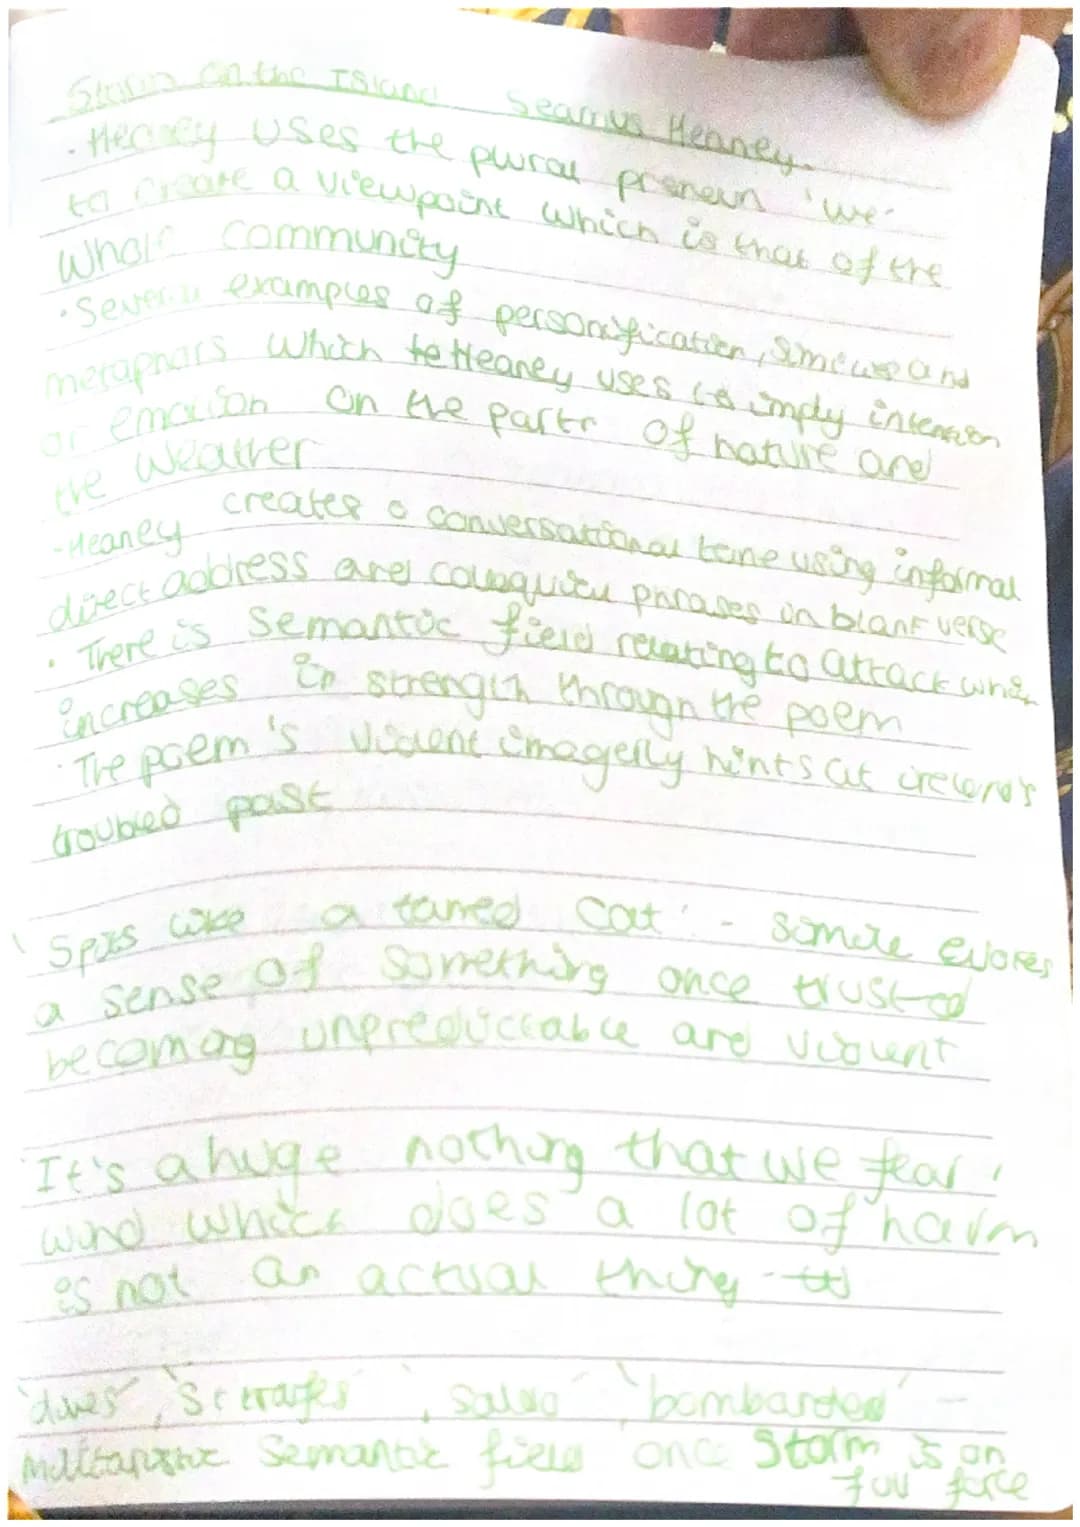 Storm on the Island Seamus Heaney.
· Heaney uses the plural pronoun 'we'
to create a viewpoint which is that of the
whole community
· Several examples of personification, similes and
metaphors which Heaney uses to imply intension
or emotion on the part of nature and
the weather
- Heaney creates a conversational tone using informal
direct address and colloquial phrases in blank verse
· There is semantic field relating to attack which
increases in strength through the poem
· The poem's violent imagery hints at ireland's
troubled past
'Spits like a tamed cat' - simile evokes
a sense of something once trusted
becoming unpredictable and violent
'It's a huge nothing that we fear'
wind which does a lot of harm
is not an actual thing -
'dives' 'Strafes', Salvo' 'bombarded' -
Militaristic Semantic field once Storm is on
full force